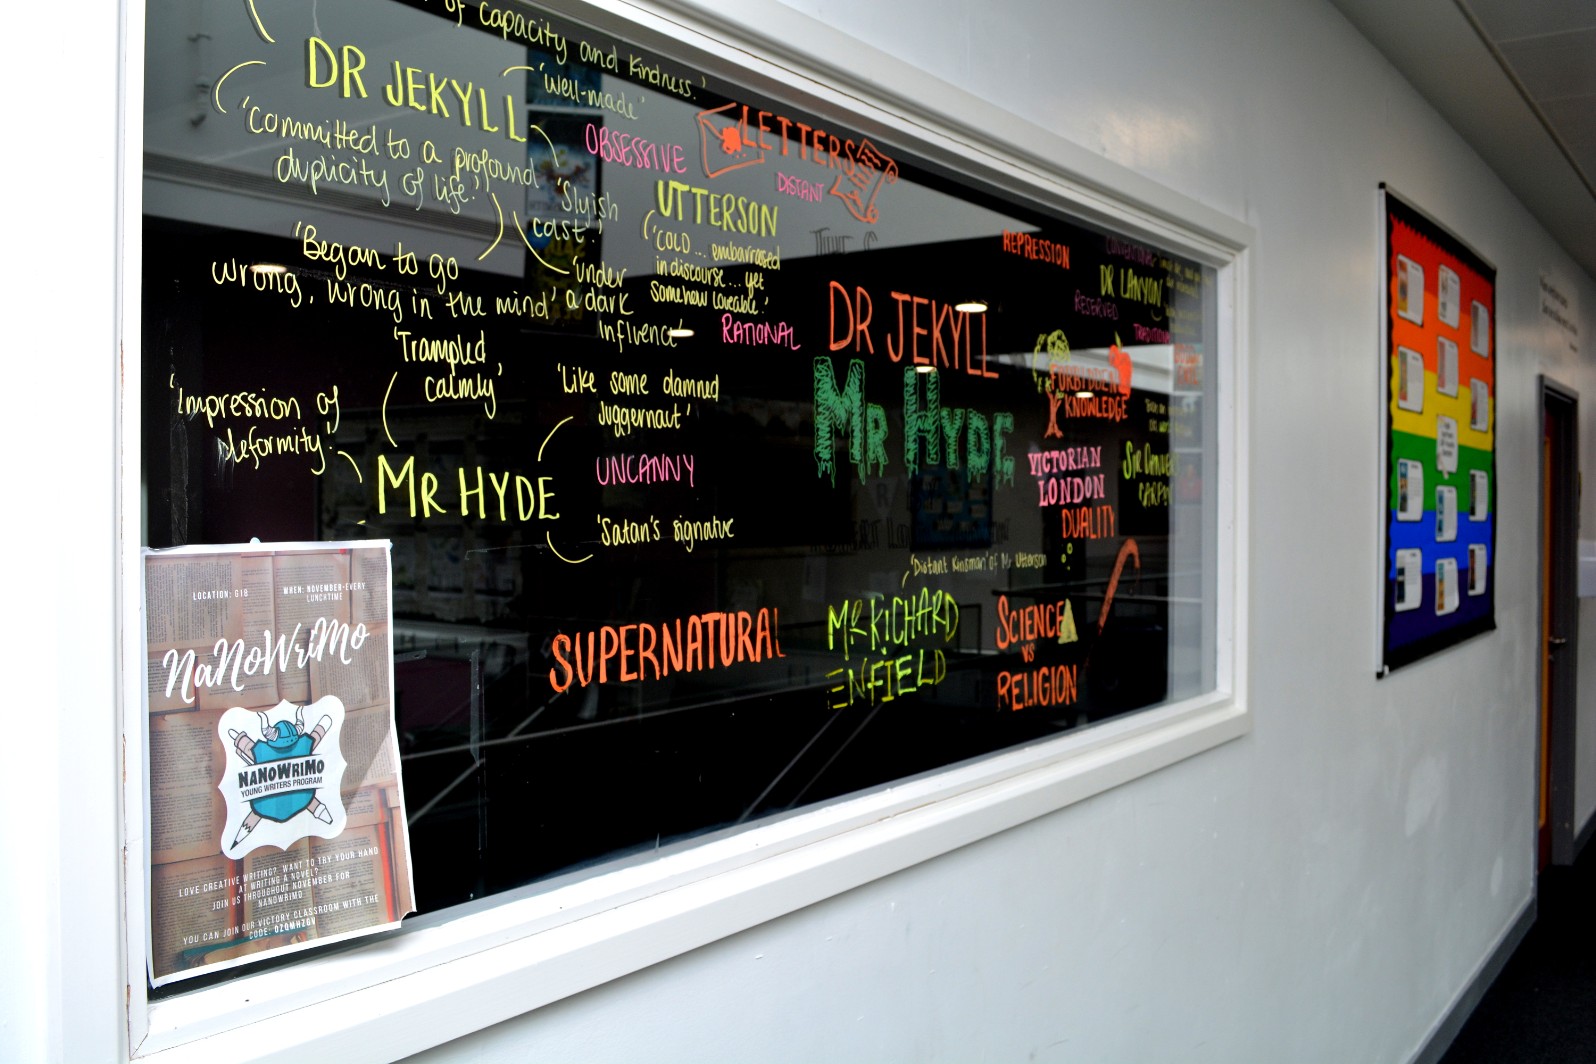 of capacity and kindness.'
DR JEKYLL
'well-made'
'committed to a profound
duplicity of life.'
OBSESSIVE
LETTERS
DISTANT
'Slyish
cast.'
UTTERSON
'COLD... embarrassed
in discourse... yet
somehow loveable.'
'Began to go
wrong, wrong in the mind'
'under
a dark
influence
RATIONAL
'Trampled
calmly'
'Impression of
deformity.'
'Like some damned
Juggernaut'
MR HYDE
UNCANNY
'Satan's signature
DR JEKYLL
MR HYDE
REPRESSION
DR LANYON
RESERVED
FORBIDDEN
KNOWLEDGE
VICTORIAN
LONDON
DUALITY
'Distant kinsman' of Mr Utterson
SUPERNATURAL
MR RICHARD
ENFIELD
SCIENCE
VS
RELIGION
LOCATION: G18
WHEN: NOVEMBER-EVERY
LUNCHTIME
NaNoWriMo
NANOWRIMO
YOUNG WRITERS PROGRAM
LOVE CREATIVE WRITING? WANT TO TRY YOUR HAND
AT WRITING A NOVEL?
JOIN US THROUGHOUT NOVEMBER FOR
NANOWRIMO
YOU CAN JOIN OUR VICTORY CLASSROOM WITH THE
CODE: